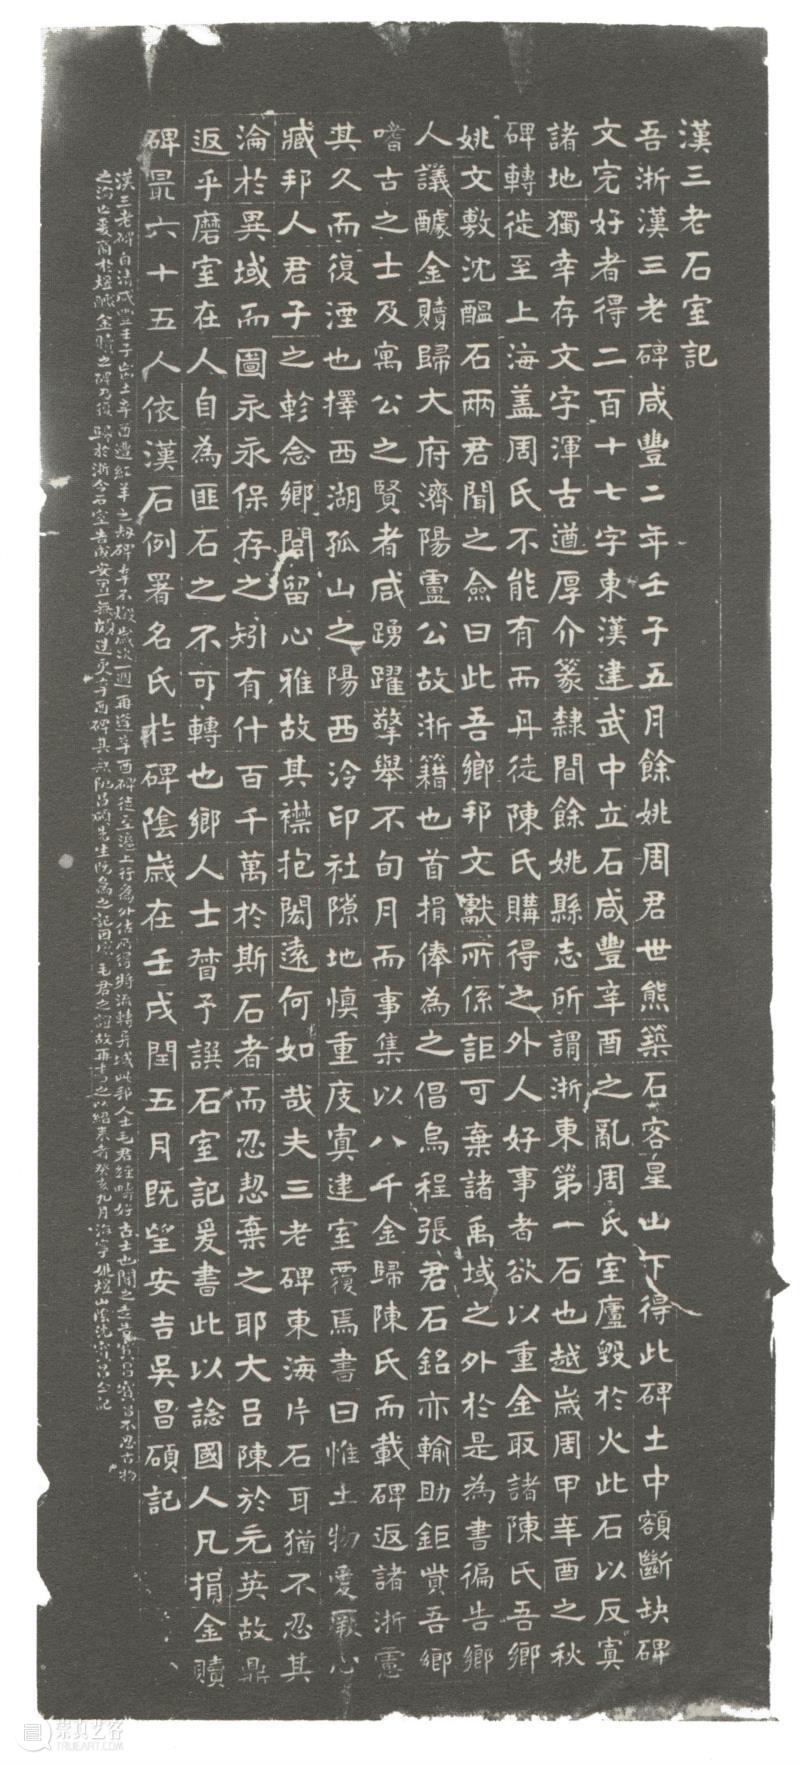 漢三老石室記
吾浙漢三老碑咸豐二年壬子五月餘姚周君世熊築石客星山下得此碑土中額斷缺碑
文完好者得二百十七字東漢建武中立石咸豐辛酉之亂周氏室廬毀於火此石以反寘
諸地獨幸存文字渾古遒厚介篆隸間餘姚縣志所謂浙東第一石也越歲周甲辛酉之秋
碑轉徙至上海蓋周氏不能有而丹徒陳氏購得之外人好事者欲以重金取諸陳氏吾鄉
姚文敷沈醖石兩君聞之僉曰此吾鄉邦文獻所係詎可棄諸禹域之外於是為書徧告鄉
人議醵金贖歸大府濟陽盧公故浙籍也首捐俸為之倡烏程張君石銘亦輸助鉅貲吾鄉
嗜古之士及寓公之賢者咸踴躍擎舉不旬月而事集以八千金歸陳氏而載碑返諸浙憲
其久而復湮也擇西湖孤山之陽西泠印社隙地慎重庋寘建室覆焉書曰惟土物愛厥心
臧邦人君子之軫念鄉閭留心雅故其襟抱閎遠何如哉夫三老碑東海片石耳猶不忍其
淪於異域而圖永永保存之矧有什百千萬於斯石者而忍恝棄之耶大呂陳於元英故鼎
返乎磨室在人自為匪石之不可轉也鄉人士督予譔石室記爰書此以諗國人凡捐金贖
碑最六十五人依漢石例署名氏於碑陰歲在壬戌閏五月既望安吉吳昌碩記
漢三老碑自清咸豐壬子出土辛酉遭紅羊之劫碑幸不燬歲次一週再遭辛酉碑徙至滬上行為外估所得將流轉異域此邦人士毛君經疇好古士也聞之走告寶昌寶昌不忍古物
之淪亡爰商於煜醵金贖之碑乃復歸於浙今石室告成安置一無頗遺更辛酉碑其無恙昌碩先生既為之記因感毛君之誼故再書之以紹來者癸亥九月海寧姚煜山陰沈寶昌仝記
崇真艺客
TRUEART.COM